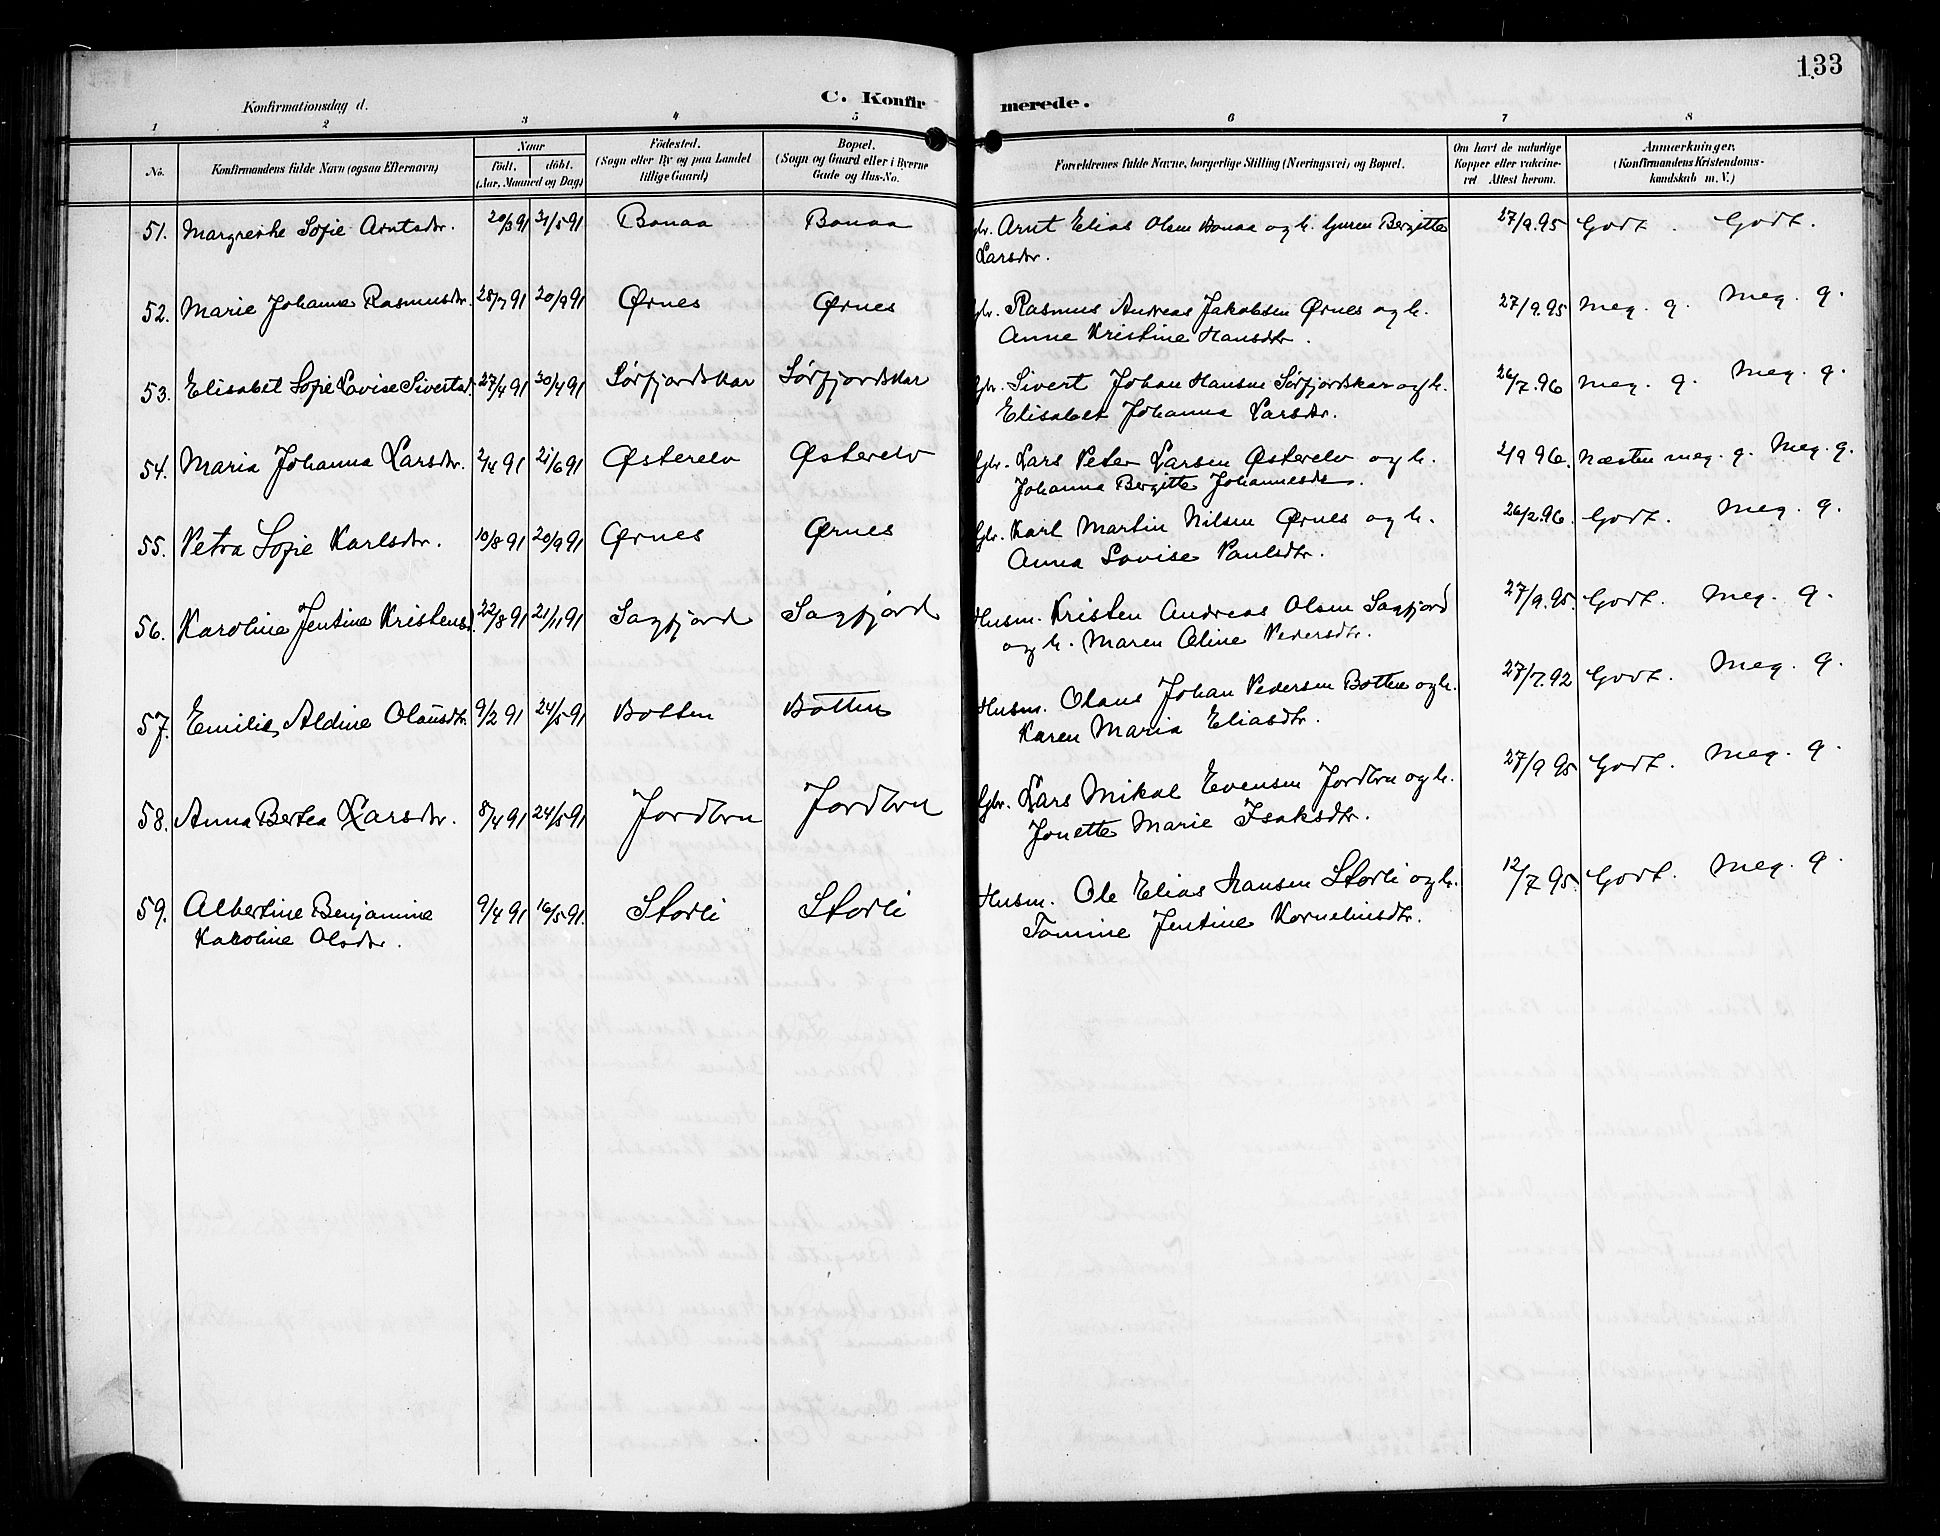 133
Konfirmationsdag d.
C. Konfirmerede.
1 2 3 4 5 6 7 8
No. Konfirmandens fulde Navn (ogsaa Efternavn) Naar født. døbt. (Aar, Maaned og Dag) Fødested. (Sogn eller By og paa Landet tillige Gaard) Bopæl. (Sogn og Gaard eller i Byerne Gade og Hus-No. Forældrenes fulde Navne, borgerlige Stilling (Næringsvei) og Bopæl. Om havt de naturlige Kopper eller vakcineret Attest herom. Anmærkninger. (Konfirmandens Kristendomskundskab m. V.)
51. Margrethe Sofie Arntsdtr. 20/3 91 31/5 91 Bonaa Bonaa Gbr. Arnt Elias Olsen Bonaa og h. Guren Bergitte 27/9.95 Godt. Godt.
Larsdtr.
52. Marie Johanna Rasmusdtr. 28/7 91 20/9 91 Ørnes Ørnes Gbr. Rasmus Andreas Jakobsen Ørnes og h. 27/9.95 Meg. g. Meg. g.
Anne Kristine Hansdtr.
53. Elisabet Sofie Lovise Sivertsd. 27/4 91 30/4 91 Sørfjordskar Sørfjordskar Gbr. Sivert Johan Hansen Sørfjordskar og h. 26/7.96 Meg. g. Meg. g.
Elisabet Johanna Larsdtr.
54. Maria Johanna Larsdtr. 2/4 91 21/6 91 Østerelv Østerelv Gbr. Lars Peter Larsen Østerelv og h. 2/9 96. Næsten meg. g. Meg. g.
Johanna Bergitte Johannesdtr.
55. Petra Sofie Karlsdtr. 10/8 91 20/9 91 Ørnes Ørnes Gbr. Karl Martin Nilsen Ørnes og h. 26/2.96. Godt. Meg. g.
Anna Lovise Paulsdtr.
56. Karoline Jentine Kristensd. 22/8 91 21/11 91 Sagfjord Sagfjord Husm. Kristen Andreas Olsen Sagfjord 27/9.95. Godt. Meg. g.
og h. Maren Oline Pedersdtr.
57. Emilie Aldine Olausdtr. 9/2 91 24/5 91 Botten Botten Husm. Olaus Johan Pedersen Botten og h. 27/7.92 Godt. Meg. g.
Karen Maria Eliasdtr.
58. Anna Bertea Larsdtr. 8/4 91 24/5 91 Jordbru Jordbru Gbr. Lars Mikal Evensen Jordbru og h. 27/9 95 Godt. Meg. g.
Jonette Marie Isaksdtr.
59. Albertine Benjamine 9/4 91 16/5 91. Storli Storli Husm. Ole Elias Hansen Storli og h. 12/7 95. Godt. Meg. g.
Karoline Olsdtr. Tomine Jentine Korneliusdtr.